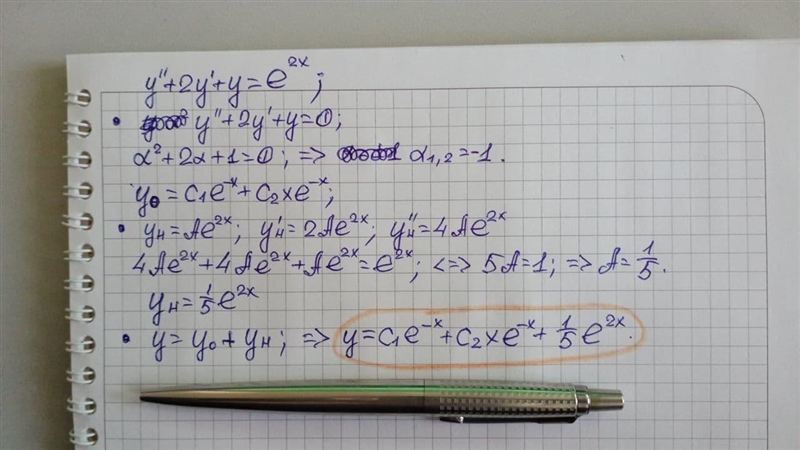 y''+2y'+y=e^{2x};
• y''+2y'+y=0;
α²+2α+1=0; => α₁,₂=-1.
y₀=C₁e^{-x}+C₂xe^{-x};
• yн=Ae^{2x}; y'н=2Ae^{2x}; y''н=4Ae^{2x}
4Ae^{2x}+4Ae^{2x}+Ae^{2x}=e^{2x}; <=> 5A=1; => A=1/5.
yн=1/5e^{2x}
• y=y₀+yн; => y=C₁e^{-x}+C₂xe^{-x}+1/5e^{2x}.